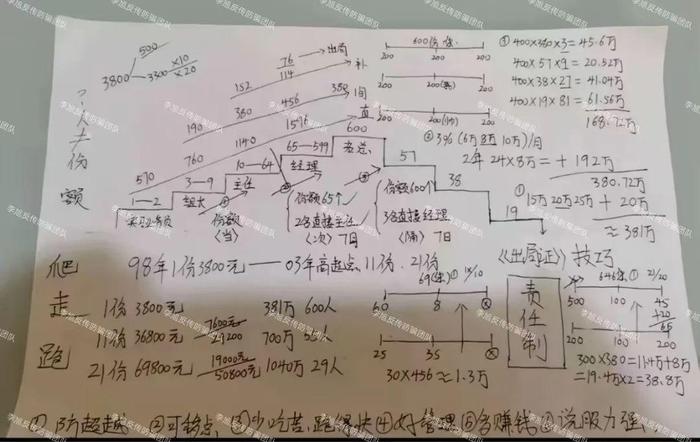 李旭反传防骗团队
3800 500
3300 ×10
×20
人≠份额
76 → 出局
114
152 补
380 456 380 间
190 1140 1596 直
570 760 600
65—599
10—64 经理 老总
3—9 主任
1—2 组长
实习业务员
份额
(当)
份额65个
2名直接主任
(次)7日
份额600个
3名直接经理
(隔)7日
57
38
19
600份
200 200
200 200 200
200 200 200
① 400×380×3=45.6万
400×57×9=20.52万
400×38×27=41.04万
400×19×81=61.56万
168.72万
② 3% (6万8万10万)/月
2年 24×8万=+192万
380.72万
① 15万20万25万 + 20万
≈381万
《出局证》技巧
爬 98年1份3800元——03年高起点、11份、21份
走 1份3800元 381万 600人
11份 36800元 7600元 29200 700万
跑 21份 69800元 19000元 50800元 1040万 29人
60 8
25 35
30×456≈1.3万
责任制
646 21/20
500 100 45
+20
65
200 100 200
300×380=11.4万+8万
=19.4万×2=38.8万
①防超越 ②可转点 ③少吃苦,跑得快 ④好管理 ⑤多赚钱 ⑥说服力强